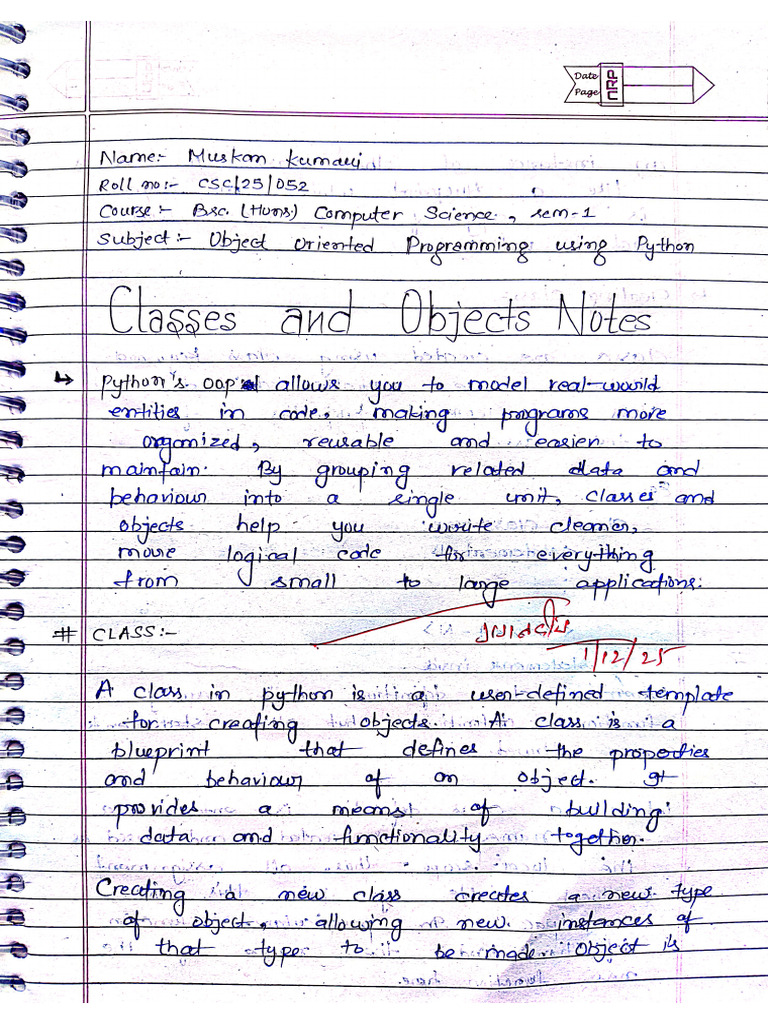 Date
Page
NRP
Name:- Muskan Kumari
Roll no:- CSC/25/052
Course:- Bsc. (Hons.) Computer Science, sem-1
Subject:- Object Oriented Programming using Python
Classes and Objects Notes
↳ Python's oop allows you to model real-world
entities in code, making programs more
organized, reusable and easier to
maintain. By grouping related data and
behaviour into a single unit, classes and
objects help you write cleaner,
more logical code for everything
from small to large applications.
# CLASS:-
1/12/25
A class in python is a user-defined template
for creating objects. A class is a
blueprint that defines the properties
and behaviour of an object. It
provides a means of building
data and functionality together.
Creating a new class creates a new type
of object, allowing new instances of
that type to be made. Object is